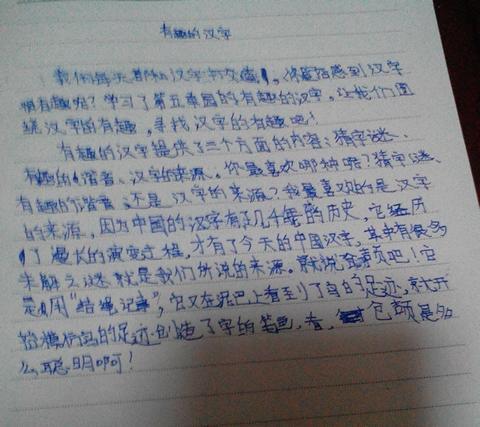 有趣的汉字
我们每天都和汉字打交道,你是否感到汉字
很有趣呢?学习了第五单园的有趣的汉字,让我们围
绕汉字的有趣,寻找汉字的有趣吧!
有趣的汉字提供了三个方面的内容:猜字谜、
有趣的谐音、汉字的来源。你最喜欢哪种呢?猜字谜、
有趣的谐音、还是汉字的来源?我最喜欢的是汉字
的来源,因为中国的汉字有几千年的历史,它经历
了漫长的演变过程,才有了今天的中国汉字,其中有很多
未解之谜就是我们所说的来源。就说仓颉吧!它
是用"结绳记事",它又在泥巴上看到了鸟的足迹,就开
始模仿鸟的足迹创造了字的笔画,看,仓颉是多
么聪明啊!